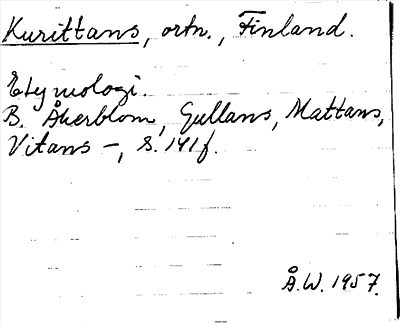 Kurittans, ortn., Finland.
Etymologi.
B. Åkerblom, Gullans, Mattans,
Vitans –, s. 141f.
Å.W. 1957.